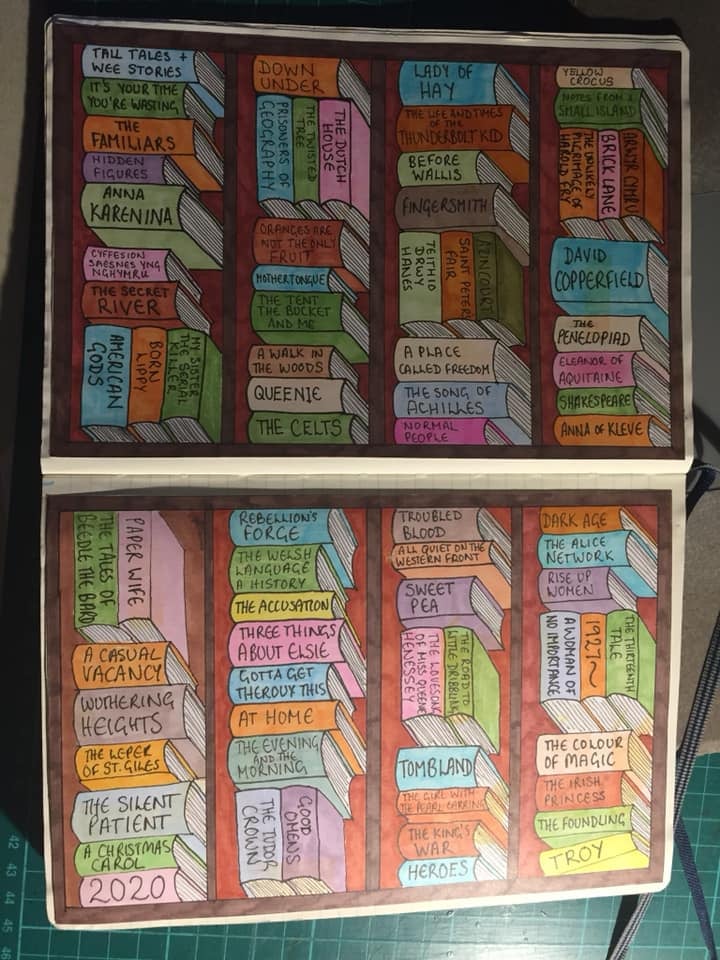 TALL TALES +
WEE STORIES
IT'S YOUR TIME
YOU'RE WASTING
THE
FAMILIARS
HIDDEN
FIGURES
ANNA
KARENINA
CYFFESION
SAESNES YNG
NGHYMRU
THE SECRET
RIVER
AMERICAN
GODS
BORN
LIPPY
MY SISTER
THE SERIAL
KILLER
DOWN
UNDER
PRISONERS OF
GEOGRAPHY
THE TWISTED
TREE
THE DUTCH
HOUSE
ORANGES ARE
NOT THE ONLY
FRUIT
MOTHER TONGUE
THE TENT
THE BUCKET
AND ME
A WALK IN
THE WOODS
QUEENIE
THE CELTS
LADY OF
HAY
THE LIFE AND TIMES
OF THE
THUNDERBOLT KID
BEFORE
WALLIS
FINGERSMITH
TEITHIO
DRWY
HANES
SAINT PETER'S
FAIR
AZINCOURT
A PLACE
CALLED FREEDOM
THE SONG OF
ACHILLES
NORMAL
PEOPLE
YELLOW
CROCUS
NOTES FROM A
SMALL ISLAND
THE UNLIKELY
PILGRIMAGE OF
HAROLD FRY
BRICK LANE
ARWYR CYMRU
DAVID
COPPERFIELD
THE
PENELOPIAD
ELEANOR OF
AQUITAINE
SHAKESPEARE
ANNA OF KLEVE
THE TALES OF
BEEDLE THE BARD
PAPER WIFE
A CASUAL
VACANCY
WUTHERING
HEIGHTS
THE LEPER
OF ST. GILES
THE SILENT
PATIENT
A CHRISTMAS
CAROL
2020
REBELLION'S
FORGE
THE WELSH
LANGUAGE
A HISTORY
THE ACCUSATION
THREE THINGS
ABOUT ELSIE
GOTTA GET
THEROUX THIS
AT HOME
THE EVENING
AND THE
MORNING
THE TUDOR
CROWN
GOOD
OMENS
TROUBLED
BLOOD
ALL QUIET ON THE
WESTERN FRONT
SWEET
PEA
THE LOVESONG
OF MISS QUEENIE
HENESSEY
THE ROAD TO
LITTLE DRIBBLING
TOMBLAND
THE GIRL WITH
THE PEARL EARRING
THE KING'S
WAR
HEROES
DARK AGE
THE ALICE
NETWORK
RISE UP
WOMEN
A WOMAN OF
NO IMPORTANCE
1927
THE THIRTEENTH
TALE
THE COLOUR
OF MAGIC
THE IRISH
PRINCESS
THE FOUNDLING
TROY
42
43
44
45
46